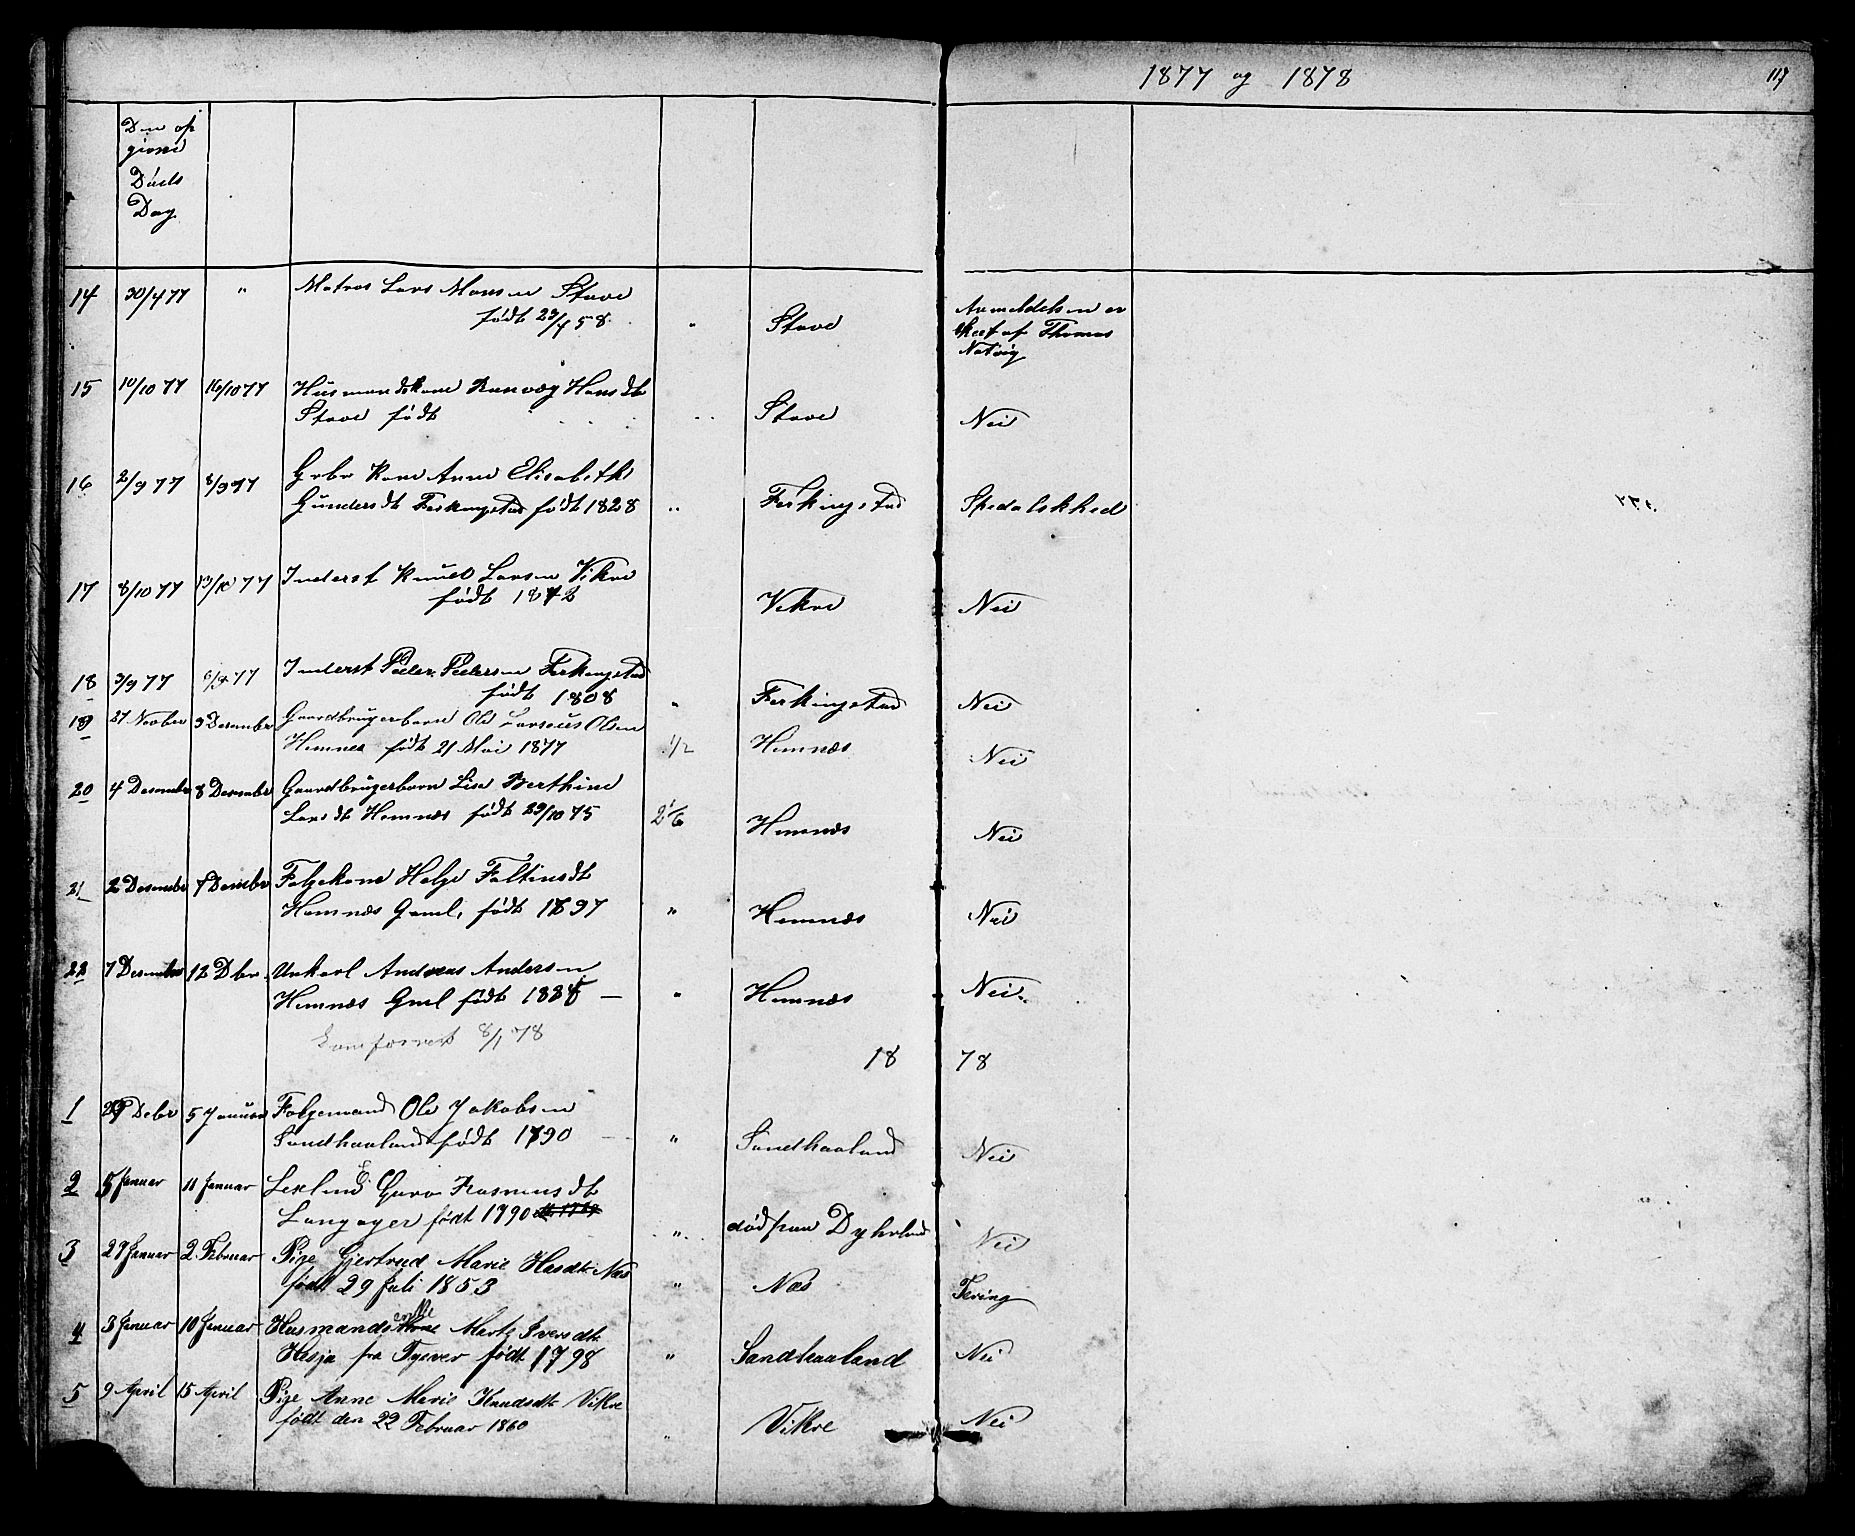 1877 og 1878 117
Den op
givne
Døds
Dag
14 30/4 77 " Matros Lars Monsen Stave
født 23/4 58 " Stave Anmeldelsen er
skeet af Thomas
Natvig
15 10/10 77 16/10 77 Husmandskone Ranvæg Hansdt
Stave født " Stave Nei
16 2/9 77 8/9 77 Grbr Kone Anne Elisabeth
Gundersdt Ferkingstad født 1828 " Ferkingstad Spedalskhed
17 8/10 77 13/10 77 Inderst Knud Larsen Vikre
født 1842 Vikre Nei
18 3/9 77 6/9 77 Inderst Peder Pedersen Ferkingstad
født 1808 " Ferkingstad Nei
19 27 Novbr 3 Desember Gaardbrugerbarn Ole Larseus Olsen
Hemnes født 21 Mai 1877 1/2 Hemnæs Nei
20 4 Desember 8 Desember Gaardbrugerbarn Lise Berthine
Larsdt Hemnæs født 29/10 75 2 1/6 Hemnæs Nei
21 2 Desember 7 Desmbr Folgekone Helge Faltinsdt
Hemnæs Gaml, født 1797 " Hemnæs Nei
22 7 Desember 12 Dbr Unkarl Andreas Andersen
Hemnæs Gml født 1828 — " Hemnæs Nei
8/1 78
18 78
1 29 Debr 5 Januar Folgemand Ole Jakobsen
Sandhaaland født 1790 — " Sandhaaland Nei
2 5 Januar 11 Januar Guro Rasmusdt
Langager født 1790 " død paa Dyhrland Nei
3 27 Januar 2 Februar Pige Gjertrud Marie Hansdt Næs
født 29 Juli 1853 " Næs Tæring
4 3 Januar 10 Januar Husmandsenke Marte Iversdt
Hesja fra Tysver født 1798 " Sandhaaland Nei
5 9 April 15 April Pige Anne Marie Knudsdt Vikre
født den 22 Februar 1860 " Vikre Nei